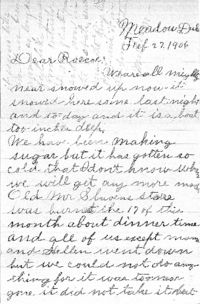 Meadow Dale
Feb 27, 1906
Dear Roscoe:
We are all
near snowed up now it
snowed here some last night
and to-day and it is about
two inches deep,
We have been making
sugar but it has gotten so
cold that I don't know
we will get any more
Old Mr. store
was burnt the 17 of this
month about dinner time
and all of us except mama
and Helen went down
but we could not do any
thing for it was too near
gone it did not take it